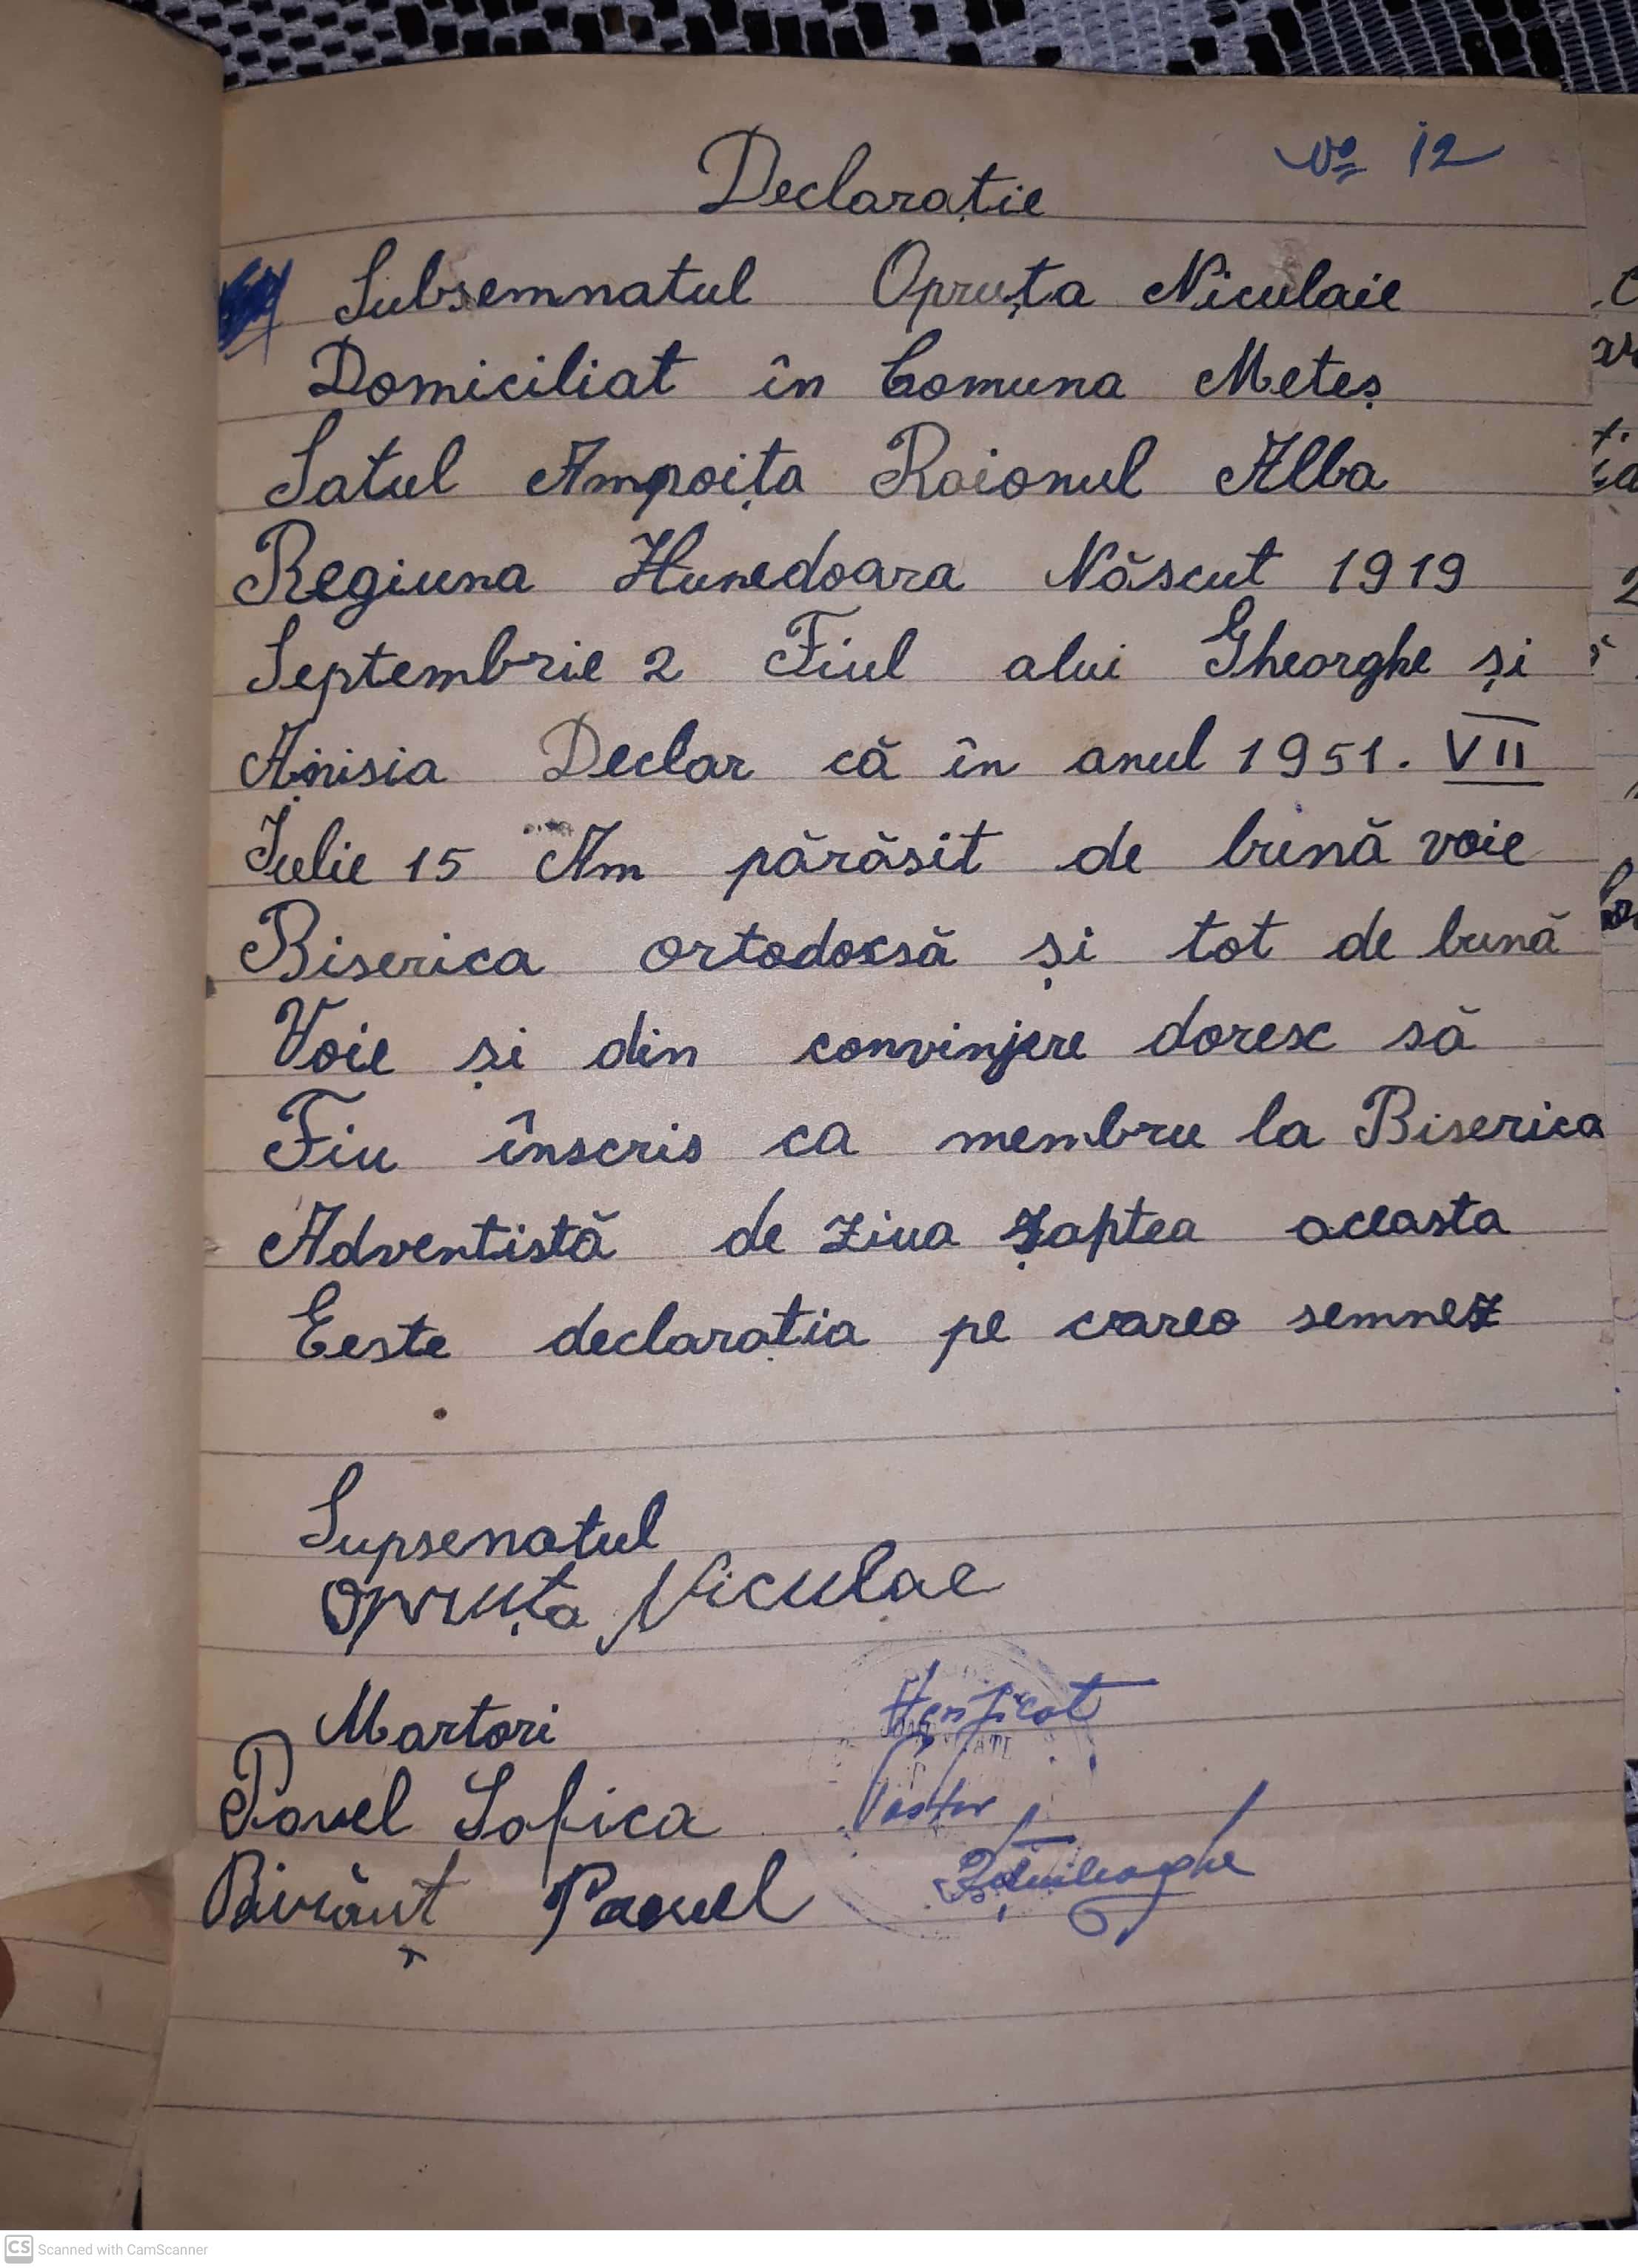 Declarație
Nº 12
Subsemnatul Opruța Niculaie
Domiciliat în Comuna Meteș
Satul Ampoița Raionul Alba
Regiuna Hunedoara Născut 1919
Septembrie 2 Fiul alui Gheorghe și
Anisia Declar că în anul 1951. VII
Iulie 15 Am părăsit de bună voie
Biserica ortodocsă și tot de bună
Voie și din convinjere doresc să
Fiu înscris ca membru la Biserica
Adventistă de ziua șaptea aceasta
Eeste declarația pe careo semnez
Supsenatul
Opruța Niculae
Martori
Pavel Sofica
Pavel
Pastor
CS Scanned with CamScanner